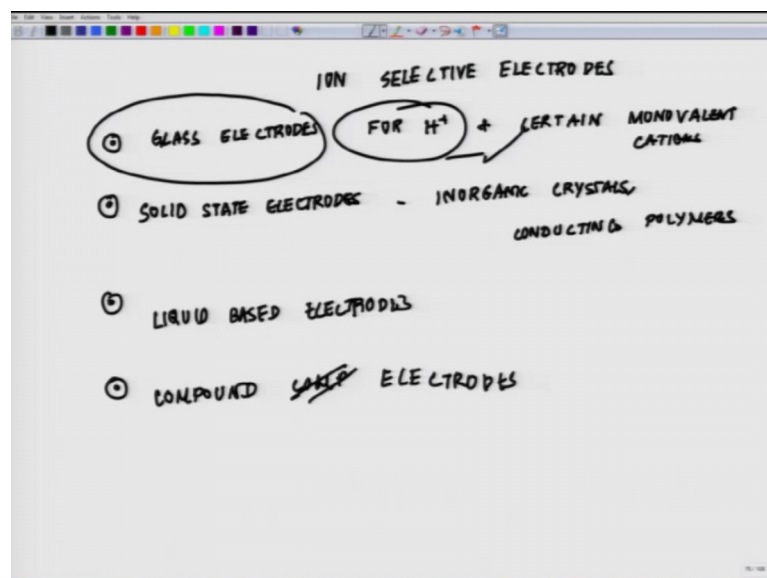 File Edit View Insert Actions Tools Help
ION SELECTIVE ELECTRODES
GLASS ELECTRODES FOR H+ + CERTAIN MONOVALENT
CATIONS
SOLID STATE ELECTRODES - INORGANIC CRYSTALS,
CONDUCTING POLYMERS
LIQUID BASED ELECTRODES
COMPOUND ELECTRODES